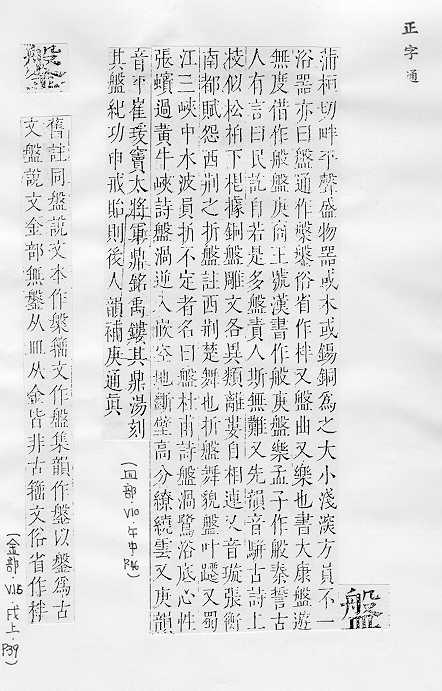 正字通
盤
蒲桓切畔平聲盛物器或木或錫銅爲之大小淺深方員不一
浴器亦曰盤通作槃鎜俗省作柈又盤曲又樂也書大康盤遊
無度借作般盤庚商王號漢書作般庚盤樂孟子作般秦誓古
人有言曰民訖自若是多盤責人斯無難又先韻音駢古詩上
枝似松柏下根據銅盤雕文各異類離婁自相連又音璇張衡
南都賦怨西荆之折盤註西荆楚舞也折盤舞貌盤叶蹮又蜀
江三峽中水波員折不定者名曰盤杜甫詩盤渦鷺浴底心性
張蠙過黄牛峽詩盤渦逆入嵌空地斷壁高分繚繞雲又庚韻
音平崔瑗竇太將軍鼎銘禹鏤其鼎湯刻
其盤紀功申戒貽則後人韻補庚通眞
(皿部.V10.午中.P46)
鎜
舊註同盤說文本作槃籀文作盤集韻作鎜以鎜爲古
文盤說文金部無鎜从皿从金皆非古籀文俗省作柈
(金部.V15.戌上.P39)